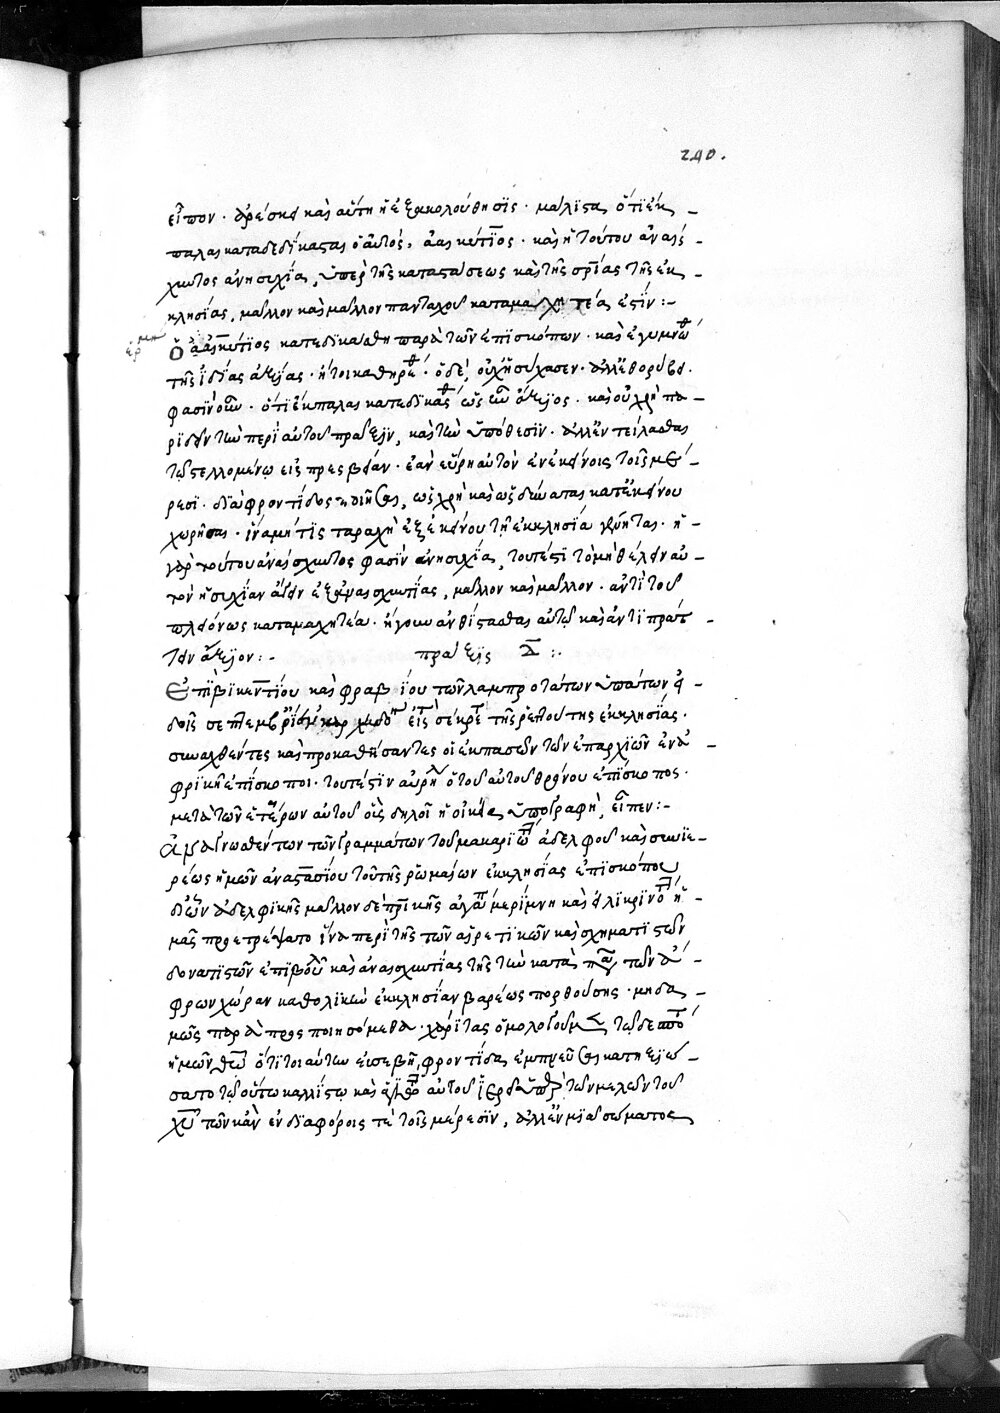 240.
εἶπον· ἀρέσκει καὶ αὕτη ἡ ἐξακολούθησϊς· μάλϊστα ὅτι ἔκ-
παλαι καταδεδίκασται ὁ αὐτὸς, κυτῖος· καὶ ἡ τούτου ἀναίσ-
χυντος ἀνησυχΐα, ὑπὲρ τῆς καταστάσεως καὶ τῆς σρίας τῆς ἐκ-
κλησίας, μᾶλλον καὶ μᾶλλον πανταχοῦ καταμαχητέα ἐστΐν:-
ἑρμη
Ὁ κύτϊος κατεδικάσθη παρὰ τῶν ἐπϊσκόπων· καὶ ἐγυμνώθ
τῆς ἰδίας ἀξίας· ἤτοι καθηρέθ· ὁ δὲ, οὐχ ἡσύχασεν· ἀλλ' ἐθορύβει·
φασὶν οὖν· ὅτι ἔκπαλαι κατεδικάσθ ὡς οὖν ἄξϊος· καὶ οὐ χρὴ πα-
ριδεῖν τὼ περὶ αὐτοῦ πρᾶξϊν, καὶ τὼ ὑπόθεσϊν· ἀλλ' ἐντείλασθαι
τῷ στελλομένῳ εἰς πρεσβείαν· ἐὰν εὕρη αὐτὸν ἐν ἐκείνοις τοῖς μέ-
ρεσι· διὰ φροντίδος ποιῆσαι, ὡς χρὴ καὶ ὡς δύναται κατ' ἐκείνου
χωρῆσαι· ἵνα μή τϊς ταραχὴ ἐξ ἐκείνου τῇ ἐκκλησία γένηται· ἡ-
γὰρ τούτου ἀναίσχυντος φασῒν ἀνησυχΐα, τουτέστϊ τὸ μὴ θέλειν αὐ-
τὸν ἡσυχΐαν ἄγειν ἐξ ἀναισχυντΐας, μᾶλλον καὶ μᾶλλον· ἀντὶ τοῦ
πλειόνως καταμαχητέα· ἤγουν ἀνθΐστασθαι αὐτῷ καὶ ἀντιπράτ-
τειν ἄξϊον:- πρᾶξϊς Δ:-
Ἐπὶ βικεντΐου καὶ φραβΐου τῶν λαμπροτάτων ὑπάτων
σεπτεμβρΐων εἰς σέκρετ τῆς ρεγΐου τῆς ἐκκλησίας·
συναχθέντες καὶ προκαθήσαντες οἱ ἐκ πασῶν τῶν ἐπαρχϊῶν ἐν ἀ-
φρικῆ ἐπΐσκοποι· τουτέστϊν αὐρηλ ὁ τοῦ αὐτοῦ θρόνου ἐπΐσκοπος·
μετὰ τῶν ἑτέρων αὐτοῦ οἷς δηλοῖ ἡ οἰκεία ὑπογραφὴ, εἶπεν:-
Ἀναγνωσθέντων τῶν γραμμάτων τοῦ μακαριω ἀδελφοῦ καὶ συνϊε-
ρέως ἡμῶν ἀναστασΐου τοῦ τῆς ρωμαίων ἐκκλησΐας ἐπϊσκόπου
δι' ὧν ἀδελφικῆς μᾶλλον δὲ πρικῆς ἀγάπ μερΐμνη καὶ εἰλικρινό ἡ-
μᾶς προετρέψατο ἵνα περὶ τῆς τῶν αἱρετικῶν καὶ σχηματιστῶν
δονατιστῶν ἐπϊβουλ καὶ ἀναισχυντΐας τῆς τὼ κατὰ πᾶν τῶν ἀ-
φρων χώραν καθολικὼ ἐκκλησΐαν βαρέως πορθούσης· μηδα-
μῶς παράπροσποιησόμεθα· χάριτας ὁμολογοῦμεν τῷ δεσπό
ἡμῶν θῶ ὅτι τοιαύτω εἰσεβῆ, φροντΐδα ἐμπνεῦσαι κατηξϊώ-
σατο τῷ οὕτω καλλΐστῳ καὶ αὐτοῦ ἱερεῖ ὑπὲρ τῶν μελεῶν τοῦ
χῦ τῶν κἂν ἐν διαφόροις τὲ τοῖς μέρεσϊν, ἀλλ' ἐν μϊᾶ σώματος